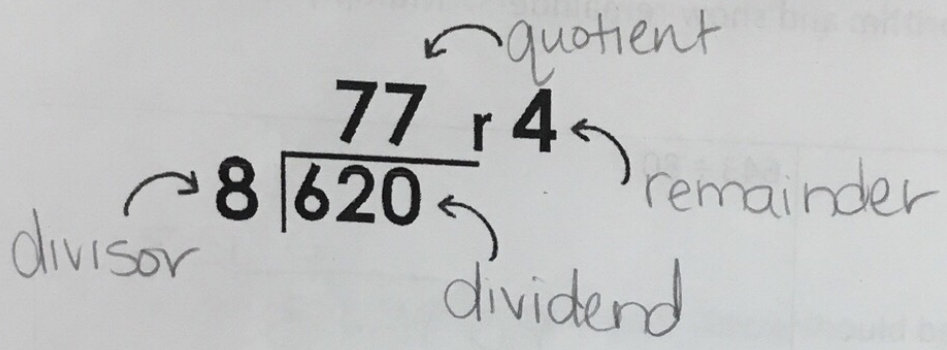 quotient
77 r 4
8 620
remainder
divisor
dividend